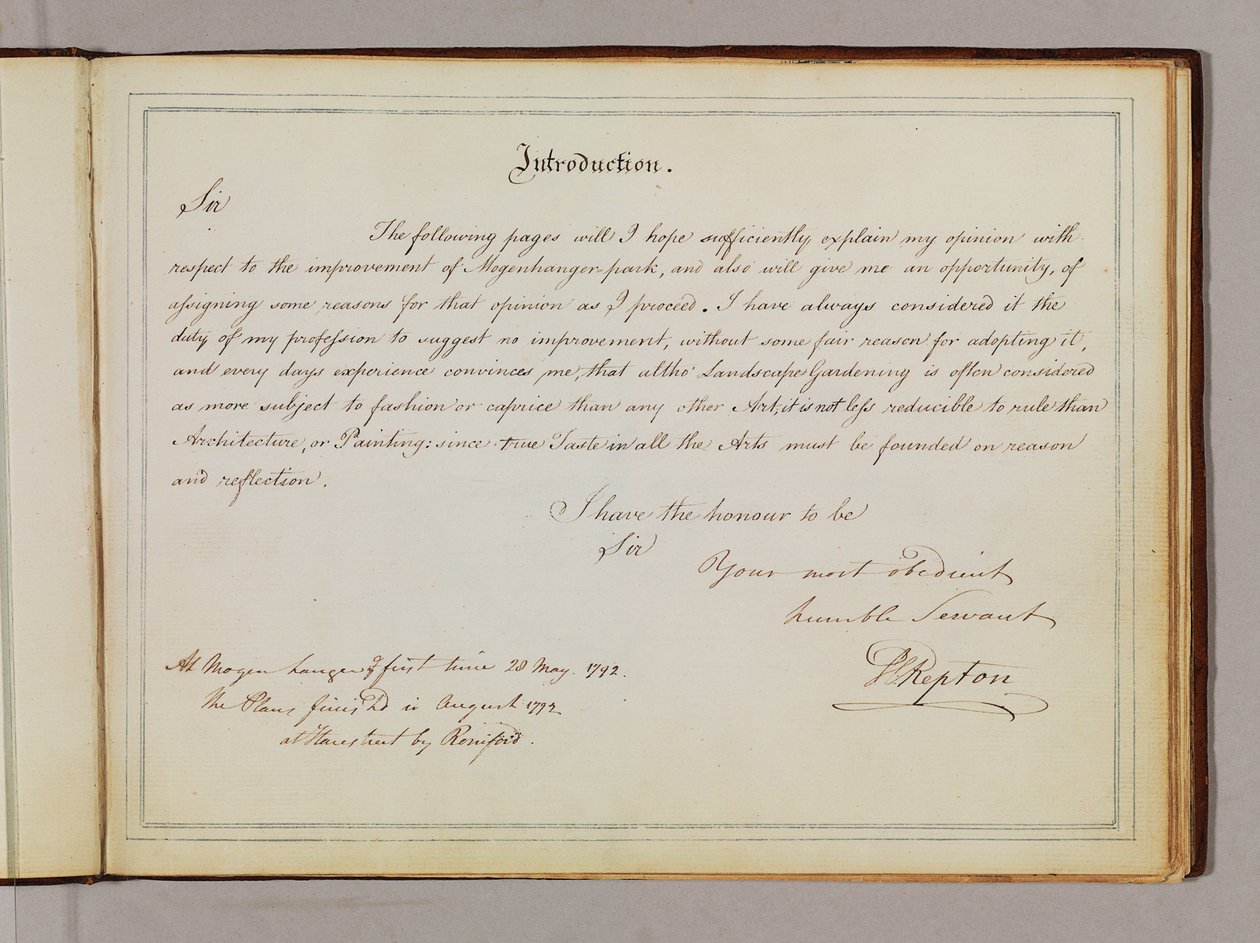 Introduction.
Sir
The following pages will I hope sufficiently explain my opinion with
respect to the improvement of Mogenhanger-park, and also will give me an opportunity, of
assigning some reasons for that opinion as I proceed. I have always considered it the
duty of my profession to suggest no improvement, without some fair reason for adopting it,
and every days experience convinces me, that altho' Landscape Gardening is often considered
as more subject to fashion or caprice than any other Art, it is not less reducible to rule than
Architecture, or Painting: since true Taste in all the Arts must be founded on reason
and reflection.
I have the honour to be
Sir
Your most obedient
humble Servant
H Repton
At Mogenhanger first time 28 May. 1792.
The Plans finish'd in August 1792
at Harestreet by Romford.